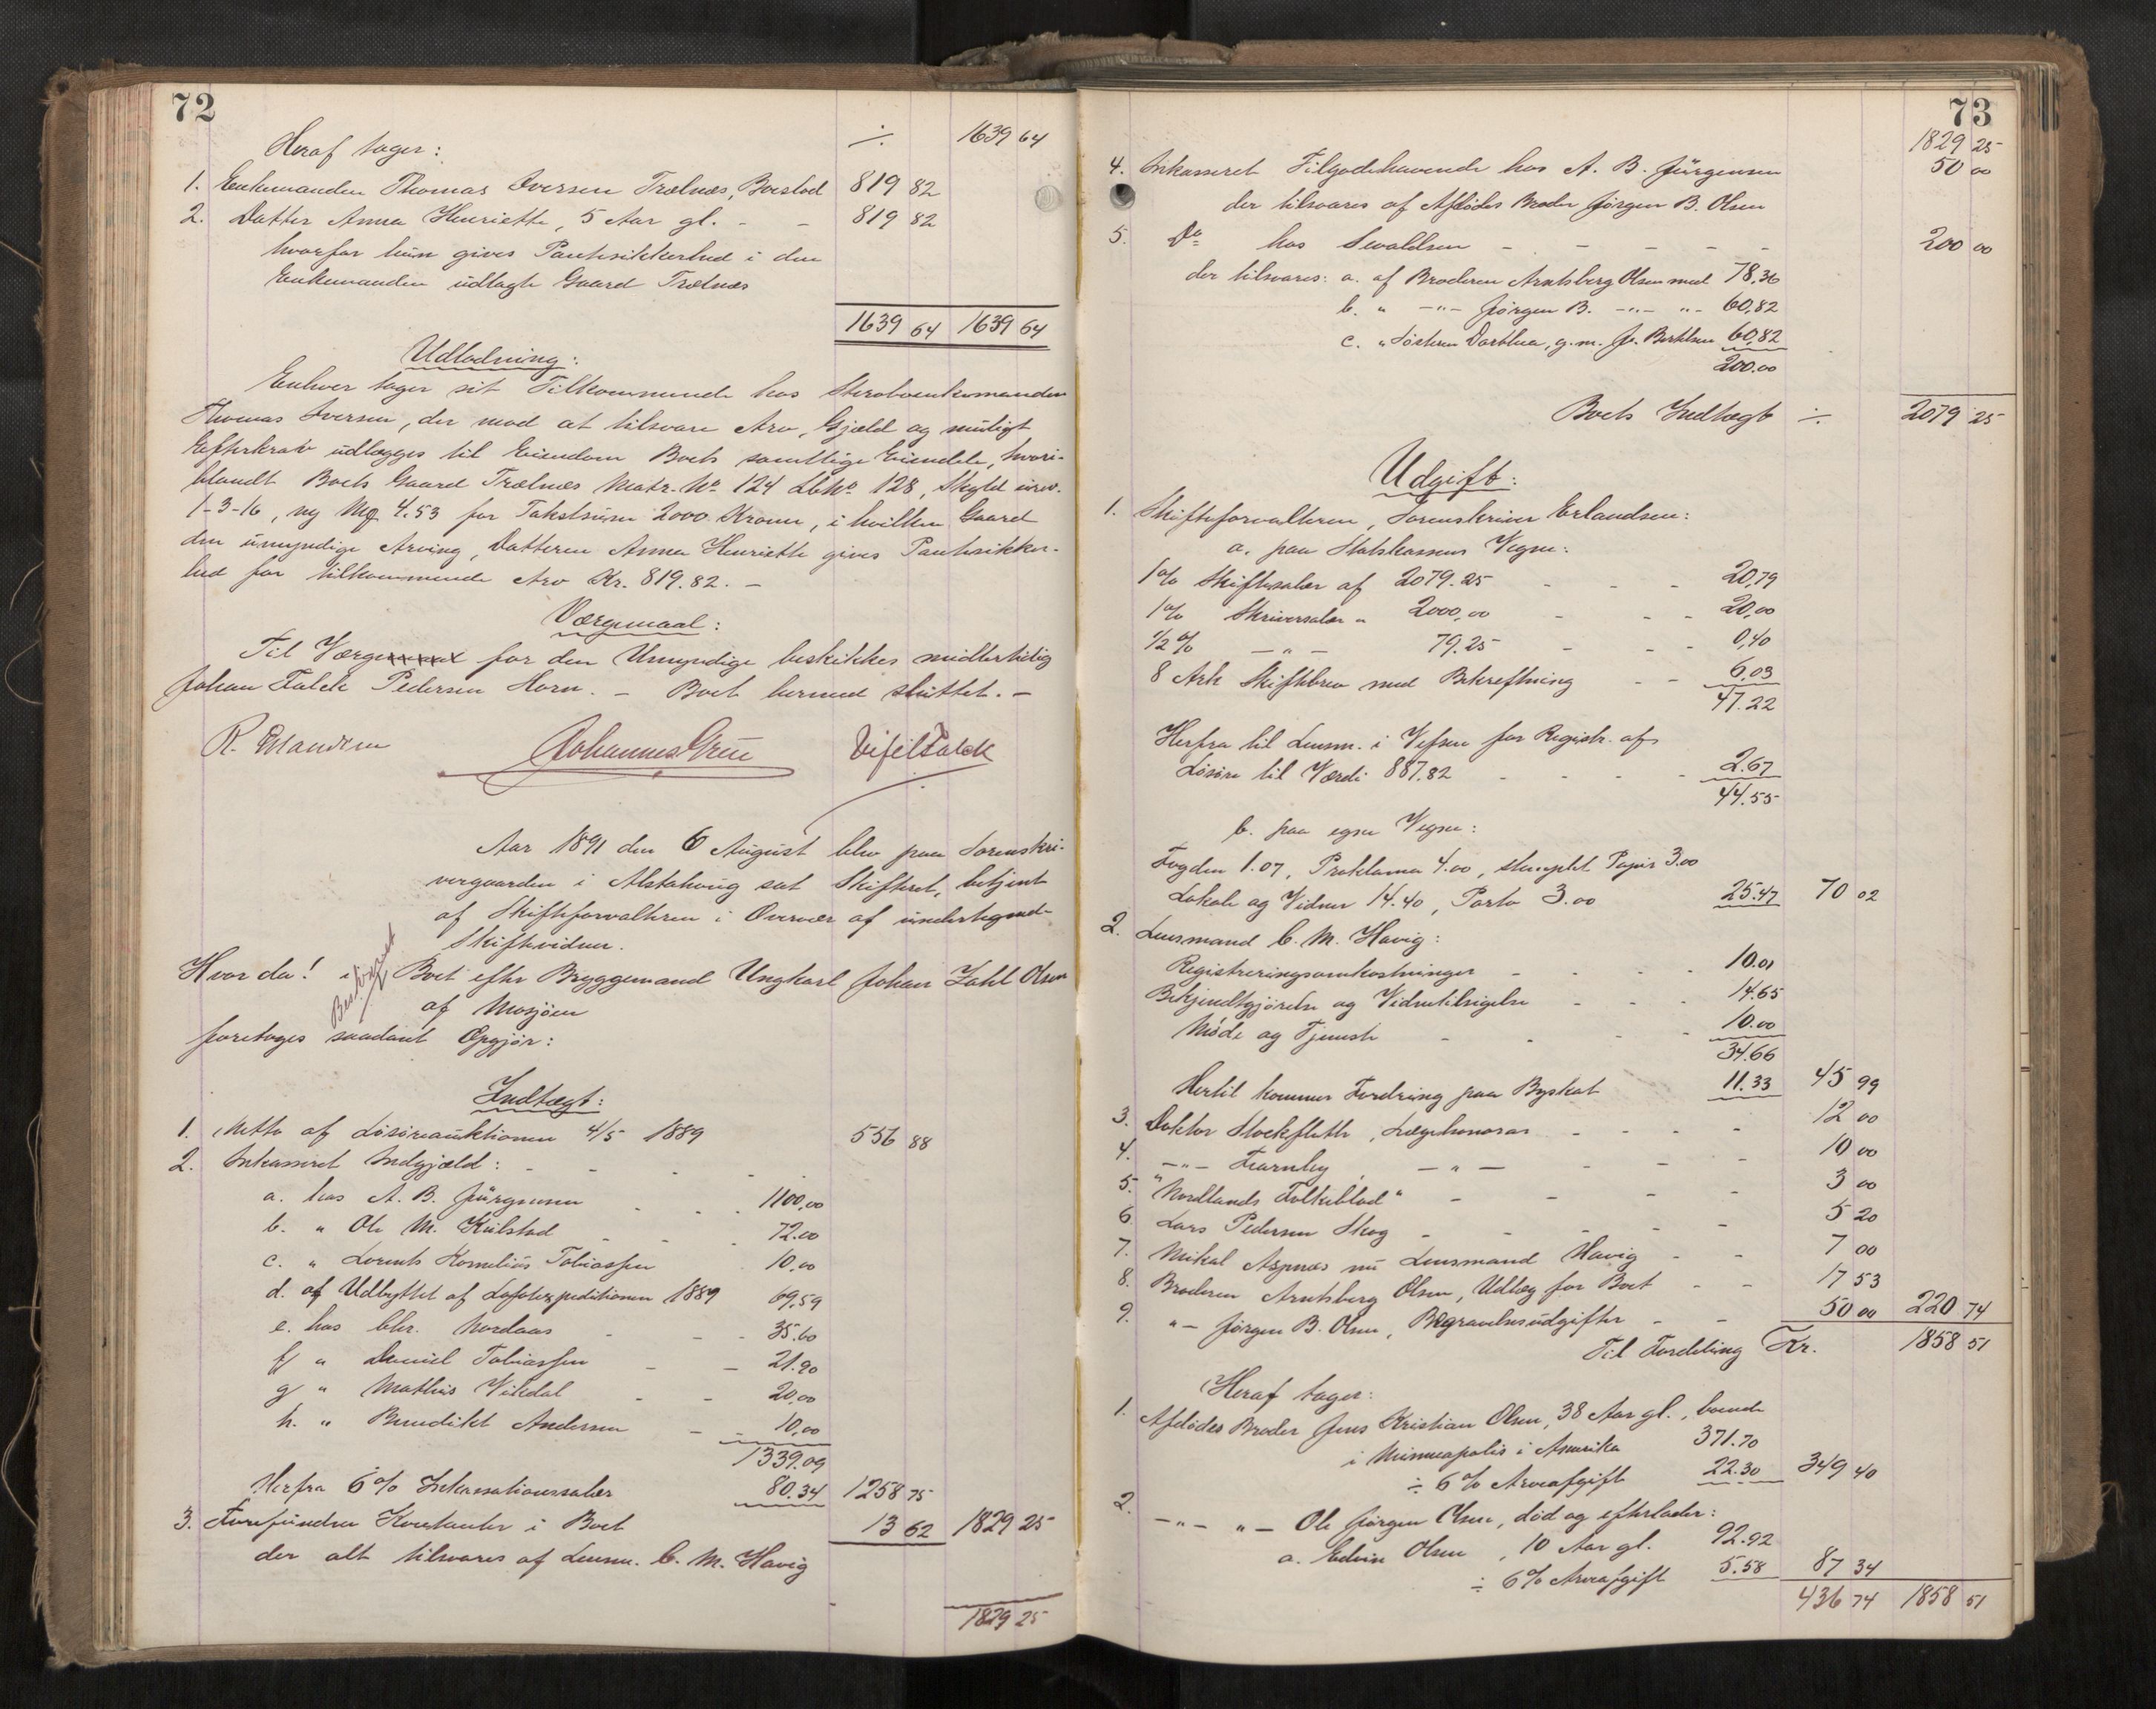 72
Heraf tager: ÷ 1639 64
1. Enkemanden Thomas Iversen Trælnæs, Boeslod 819 82
2. Datter Anna Henriette, 5 Aar gl. - - 819 82
hvorfor hun gives Pantesikkerhed i den
Enkemanden udlagte Gaard Trælnæs
1639 64 1639 64
Udlodning:
Enhver tager sit Tilkommende hos Stervboenkemanden
Thomas Iversen, der mod at tilsvare Arv, Gjæld og muligt
Efterkrav udlægges til Eiendom Boets samtlige Eiendele, hvori-
blandt Boets Gaard Trælnæs Matr. No 124 LbNo 128, Skyld urev.
1-3-16, ny Mg 4.53 for Takstsum 2000 Kroner, i hvilken Gaard
den umyndige Arving, Datteren Anna Henriette gives Pantesikker-
hed for tilkommende Arv Kr. 819.82. -
Værgemaal:
Til Værge for den Umyndige beskikkes midlertidig
Johan Falck Pedersen Horn. - Boet hermed sluttet. -
R. Erlandsen Johannes Grue Eifel Falck
Aar 1891 den 6 August blev paa Sorenskri-
vergaarden i Alstahoug sat Skifteret, betjent
af Skifteforvalteren i Overvær af undertegnede
Skiftevidner.
Hvor da! i Boet efter Bryggemand Ungkarl Johan Zahl Olsen
af Mosjøen
foretoges saadant Opgjør:
Indtægt:
1. Netto af Løsøreauktionen 4/5 1889 556 88
2. Inkasseret Indgjæld: - - - -
a. hos A. B. Jürgensen - - 1100,00
b. " Ole M. Kulstad - - - 72.00
c. " Lorents Kornelius Tobiassen 10,00
d. af Udbyttet af Lofotexpeditionen 1889 69,59
e. hos Chr. Nordaas - - - 35.60
f/ " Daniel Tobiassen - - 21.90
g " Mathias Vikdal - - 20,00
h. " Benedikt Andersen - - 10,00
1339.09
Herfra 6 % Inkassationssalær 80.34 1258 75
3. Forefunden Kontanter i Boet 13 62 1829 25
der alt tilsvares af Lensm. C. M. Havig
1829 25
73
1829 25
4. Inkasseret Tilgodehavende hos A. B. Jürgensen 50 00
der tilsvares af Afdødes Broder Jørgen B. Olsen
5. Do hos Sevaldsen - - - - - 200 00
der tilsvares: a. af Broderen Arntsberg Olsen med 78,36
b. " -"- Jørgen B. -"- "- 60,82
c. " Søsteren Dorthea, g. m. Jo. Bertelsen 60,82
200.00
Boets Indtægt ÷ 2079 25
Udgift:
1. Skifteforvalteren, Sorenskriver Erlandsen:
a. paa Statskassens Vegne:
1 % Skiftesalær af 2079.25 - - - 20,79
1 % Skriversalær " 2000,00 - - - 20,00
1/2 % -"- 79.25 - - - 0,40
8 Ark Skiftebrev med Bekreftning - - 6,03
47.22
Herfra til Lensm. i Vefsen for Registr. af
Løsøre til Værdi 887.82 - - - - 2.67
44.55
b. paa egne Vegne:
Fogden 1.07, Proklama 4.00, stemplet Papir 3.00
Lokale og Vidner 14.40, Porto 3.00 25.47 70 02
2. Lensmand C. M. Havig:
Registreringsomkostninger - - - 10.01
Bekjendtgjørelse og Vidnetilsigelse - - 14.65
Møde og Tjeneste - - - - 10.00
34.66
Hertil kommer Fordring paa Byskat 11.33 45 99
3. Doktor Stockfleth, Lægehonorar - - - - 12 00
4. -"- Fearnley, -"- - - - 10 00
5. "Nordlands Folkeblad" - - - - 3 00
6. Lars Pedersen Skog - - - - 5 20
7. Mikal Aspnæs nu Lensmand Havig - - 7 00
8. Broderen Arntsberg Olsen, Udlæg for Boet - - 17 53
9. "- Jørgen B. Olsen, Begravelsesudgifter - - 50 00 220 74
Til Fordeling Kr. 1858 51
Heraf tager:
1. Afdødes Broder Jens Kristian Olsen, 38 Aar gl., boende
i Minneapolis i Amerika 371.70
÷ 6 % Arveafgift 22.30 349 40
2. -"- "- Ole Jørgen Olsen, død og efterlader:
a. Edvin Olsen, 10 Aar gl. 92.92
÷ 6 % Arveafgift 5.58 87 34
436 74 1858 51